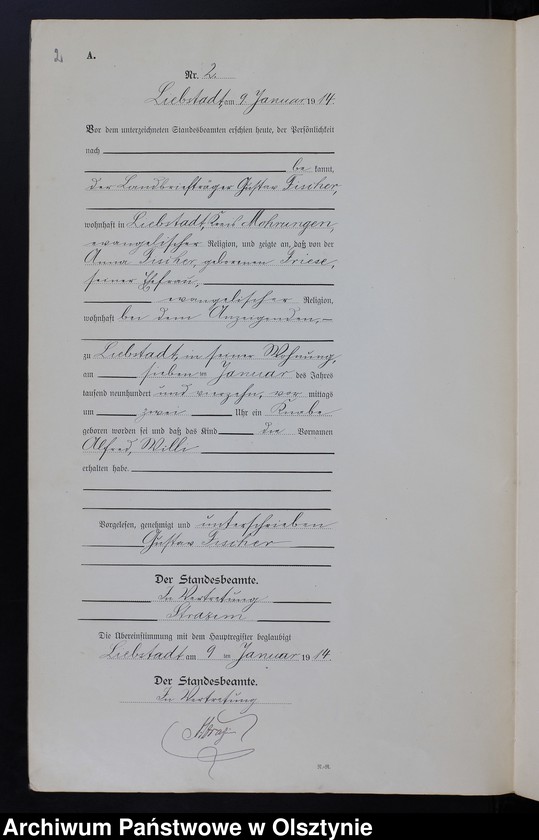 2
A.
Nr. 2.
Liebstadt, am 9. Januar 1914.
Vor dem unterzeichneten Standesbeamten erschien heute, der Persönlichkeit
nach
be kannt,
der Landbriefträger Gustav Fischer,
wohnhaft in Liebstadt, Kreis Mohrungen,
evangelischer Religion, und zeigte an, daß von der
Anna Fischer, geborenen Friese,
seiner Ehefrau,
evangelischer Religion,
wohnhaft bei dem Anzeigenden,
zu Liebstadt, in seiner Wohnung,
am sieben ten Januar des Jahres
tausend neunhundert und vierzehn, vor mittags
um zwei Uhr ein Knabe
geboren worden sei und daß das Kind die Vornamen
Alfred, Willi
erhalten habe.
Vorgelesen, genehmigt und unterschrieben
Gustav Fischer
Der Standesbeamte.
In Vertretung
Die Übereinstimmung mit dem Hauptregister beglaubigt
Liebstadt am 9 ten Januar 1914.
Der Standesbeamte.
In Vertretung
Archiwum Państwowe w Olsztynie